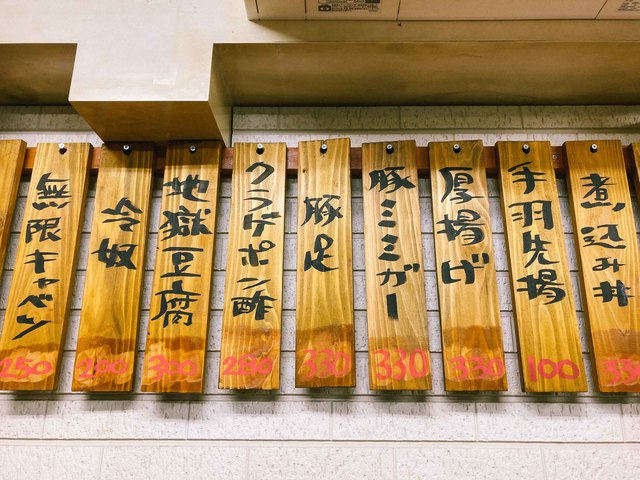 無限キャベツ
250
冷奴
200
地獄豆腐
300
クラゲポン酢
280
豚足
330
豚ミミガー
330
厚揚げ
330
手羽先揚
100
煮込み丼
33